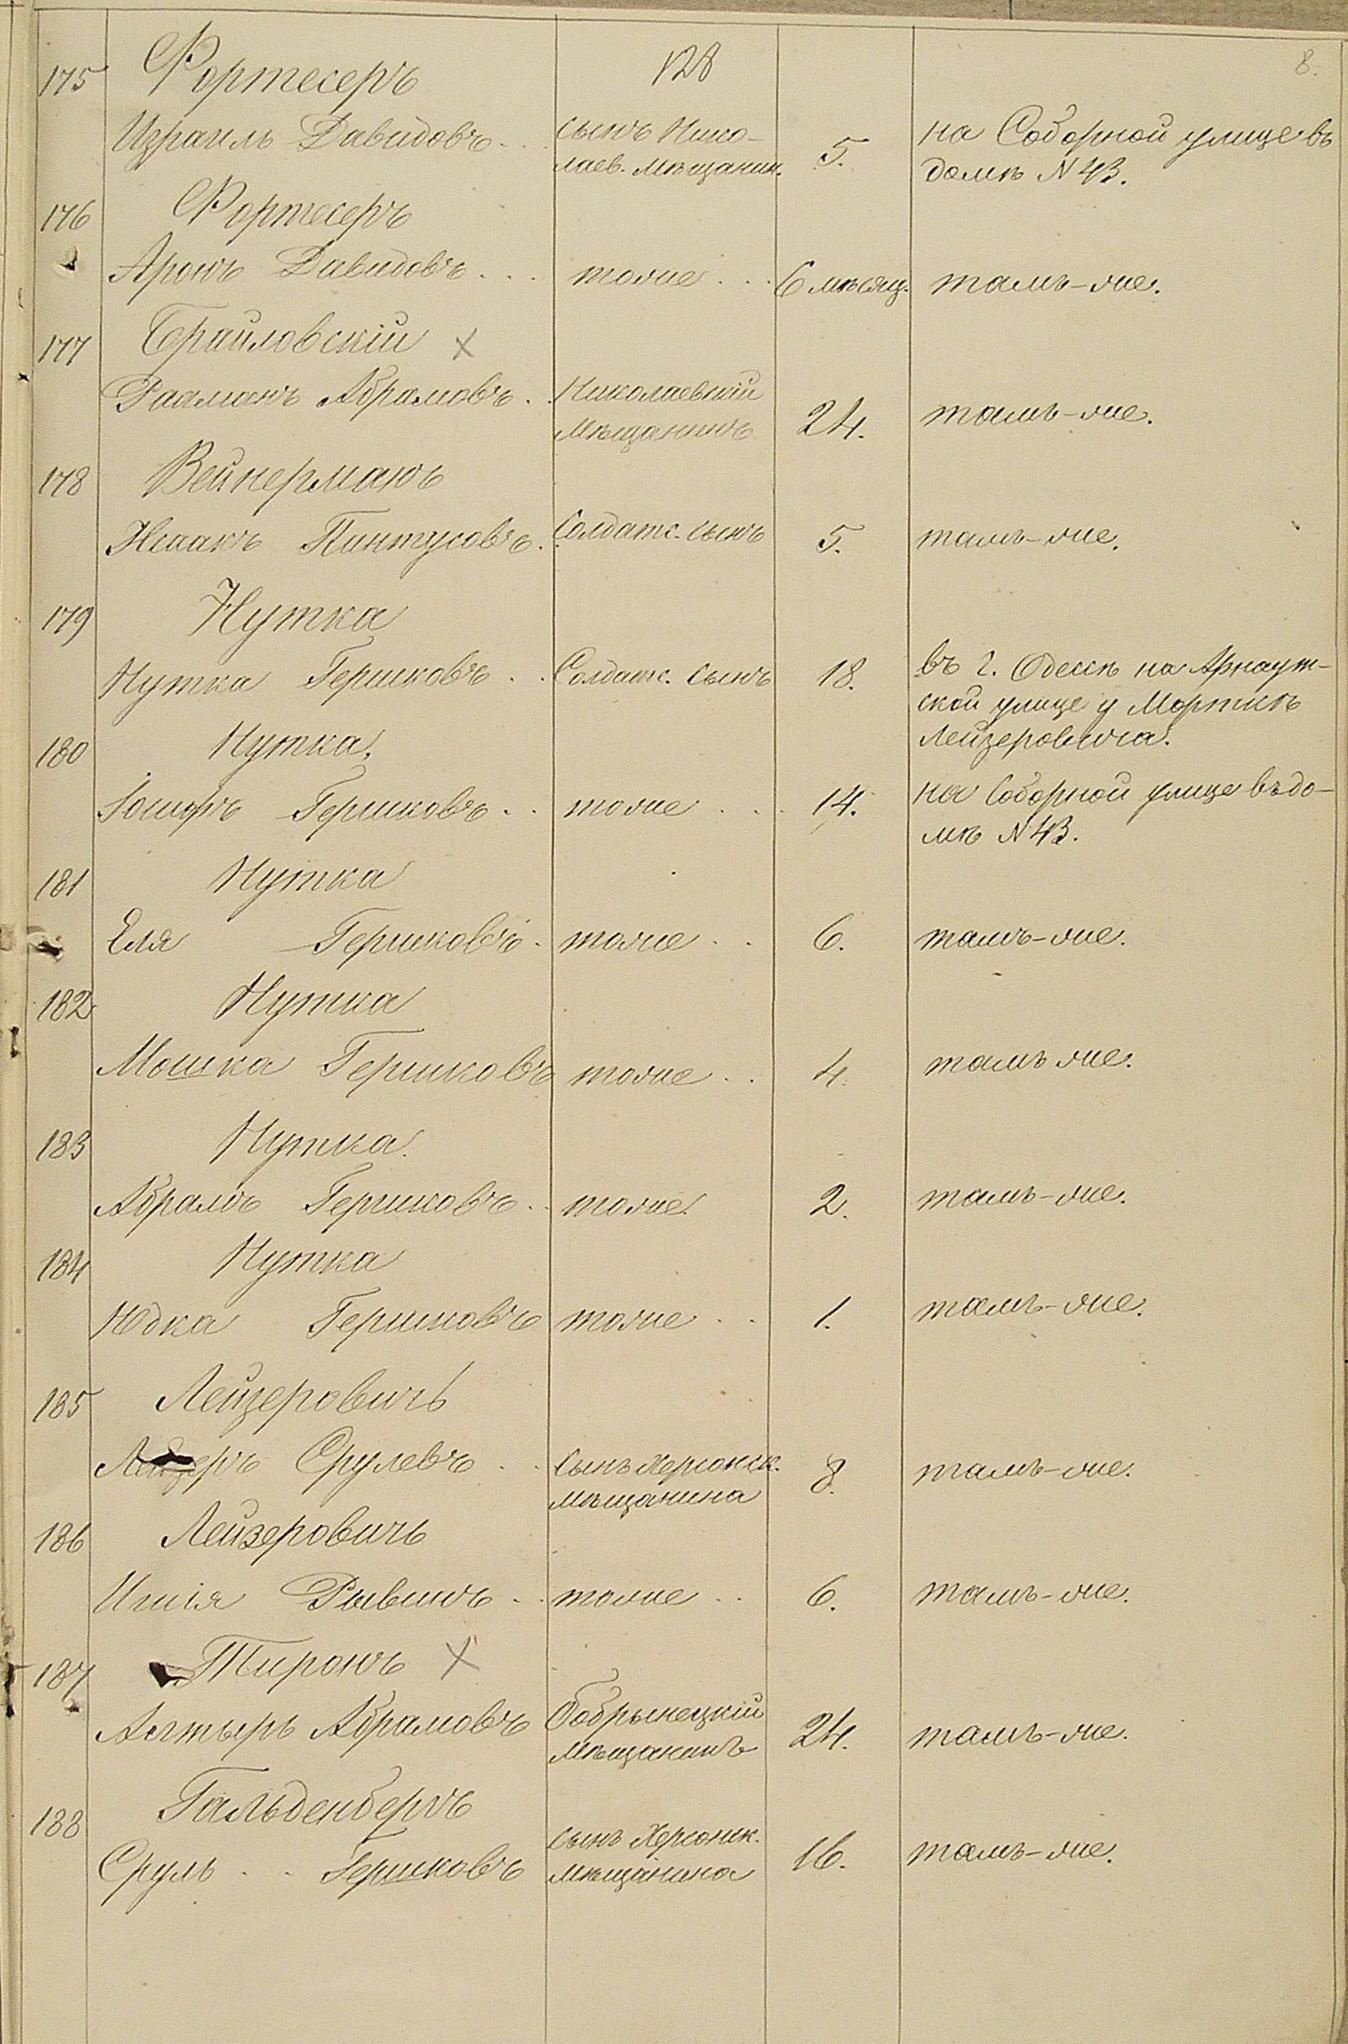 128
8.
175 Фортесеръ
Израиль Давидовъ.. сынъ Нико-
лаев. мѣщанин. 5. на Соборной улице въ
домѣ N 43.
176 Фортесеръ
Аронъ Давидовъ... тоже... 6 мѣсяц. тамъ-же.
177 Брайловскій ×
Николаевскій
Рахманъ Абрамовъ.. мѣщанинъ 24. тамъ-же.
178 Вейнерманъ
Исаакъ Пинтусовъ. Солдатс. сынъ 5. тамъ-же.
179 Нутка
Нутка Гершковъ.. Солдатс. сынъ 18. въ г. Одессѣ на Арнаут-
ской улице у Мортка
Лейзеровича.
180 Нутка.
Гершковъ.. тоже... 14. на Соборной улице въ до-
мѣ N 43.
181 Нутка
Еля Гершковъ. тоже.. 6. тамъ-же.
182 Нутка
Мошка Гершковъ тоже.. 4. тамъ же.
183 Нутка.
Абрамъ Гершковъ.. тоже. 2. тамъ-же.
184 Нутка
Юдка Гершковъ тоже.. 1. тамъ-же.
185 Лейзеровичъ
Лейзеръ Срулевъ.. сынъ Херсонск.
мѣщанина 8. тамъ-же.
186 Лейзеровичъ
Рывинъ.. тоже.. 6. тамъ-же.
187 Тиронъ ×
Алтыръ Абрамовъ Бобрынецкій
мѣщанинъ 24. тамъ-же.
188 Гальденбергъ
сынъ Херсонск.
Сруль.. Гершковъ мѣщанина 16. тамъ-же.